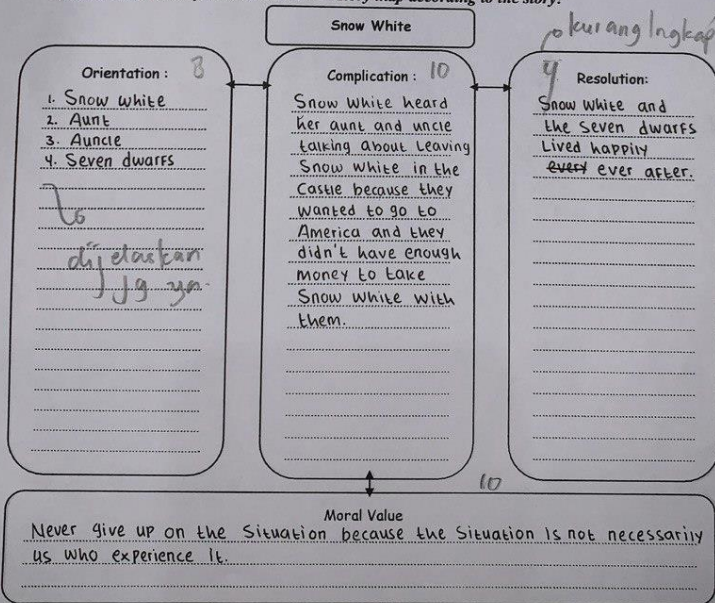 story map according to the story.
Snow White
kurang lngkap
Orientation : 8
1. Snow white
2. Aunt
3. Auncle
4. Seven dwarfs
dijelaskan
jg ya
Complication : 10
Snow White heard
her aunt and uncle
talking about Leaving
Snow White in the
Castle because they
wanted to go to
America and they
didn't have enough
money to take
Snow White with
them.
4
Resolution:
Snow White and
the Seven dwarfs
Lived happily
every ever after.
10
Moral Value
Never give up on the Situation because the Situation Is not necessarily
us who experience It.